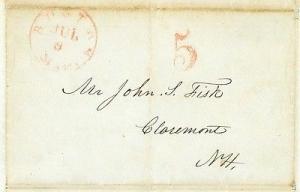 BOSTON
JUL
8
MASS.
5
Mr John. S. Fisk
Claremont
N.H.